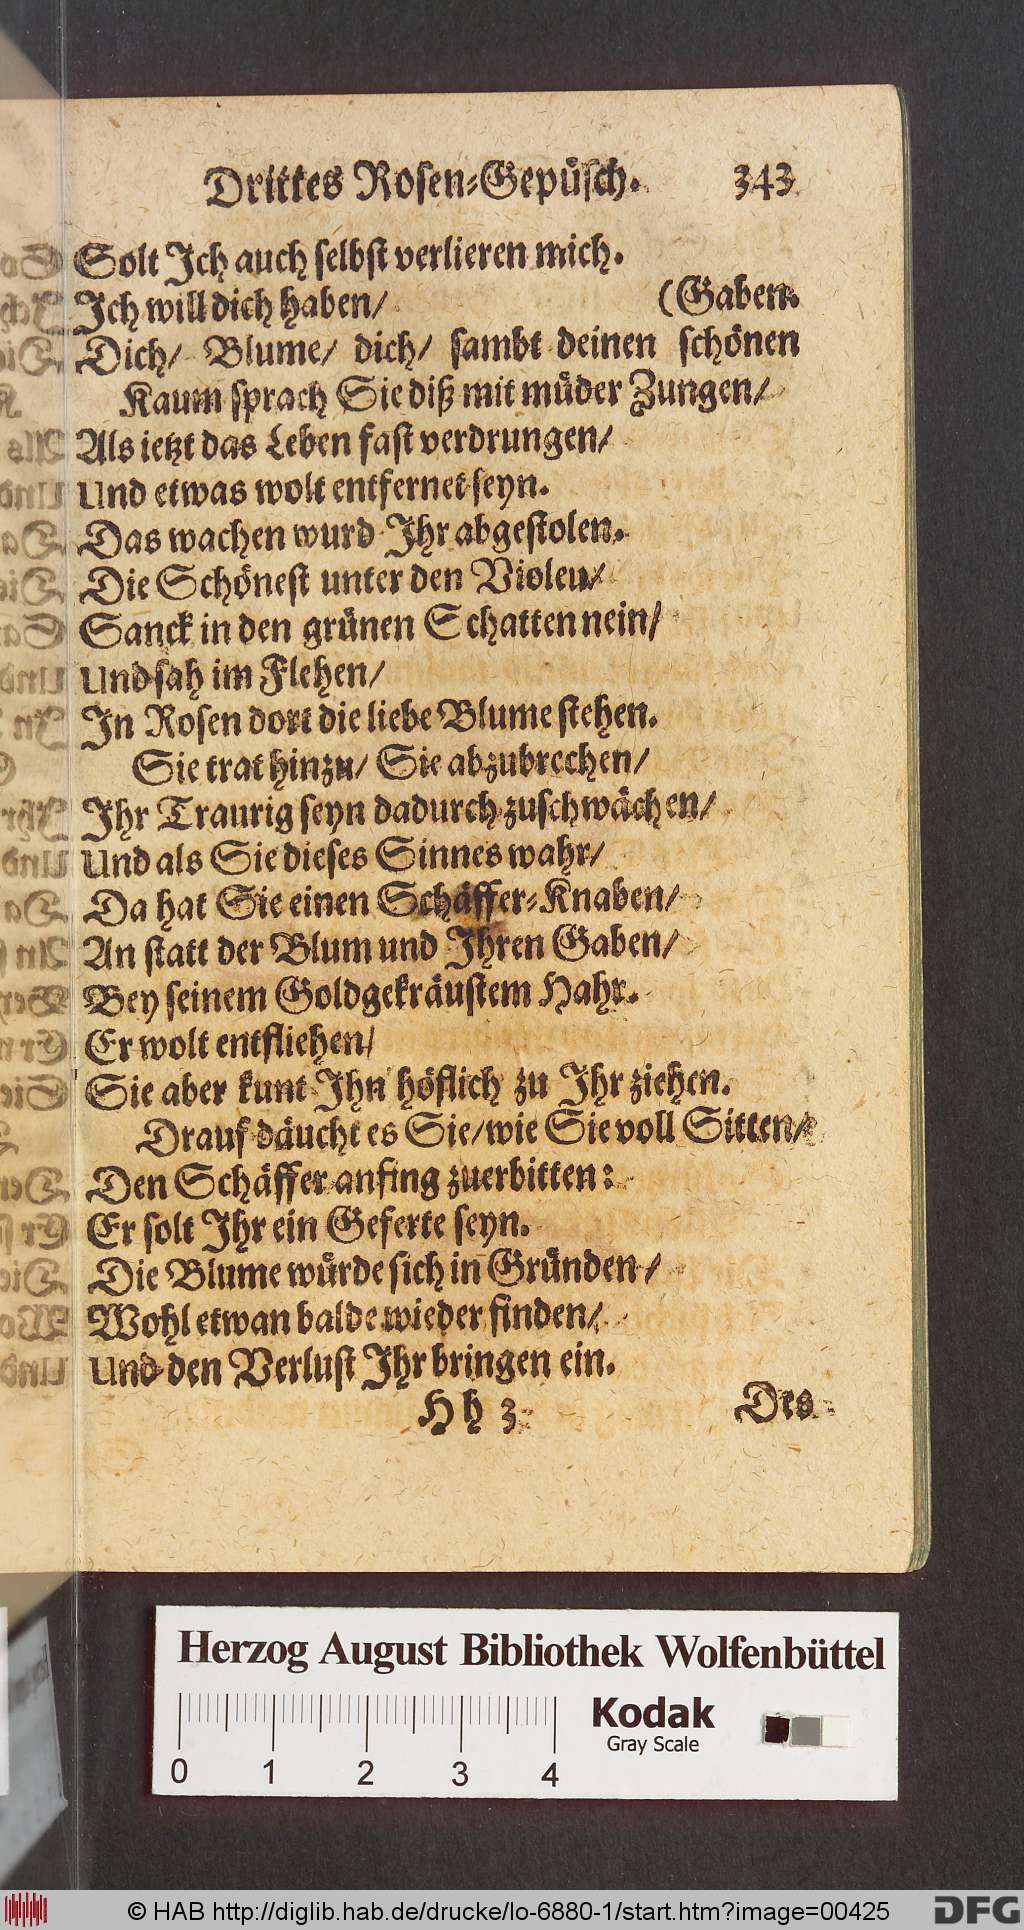 Drittes Rosen-Gepüsch. 343
Solt Ich auch selbst verlieren mich.
Ich will dich haben/ (Gaben.
Dich/ Blume/ dich/ sambt deinen schönen
Kaum sprach Sie diß mit müder Zungen/
Als ietzt das Leben fast verdrungen/
Und etwas wolt entfernet seyn.
Das wachen wurd Ihr abgestolen.
Die Schönest unter den Violen/
Sanck in den grünen Schatten nein/
Und sah im Flehen/
In Rosen dort die liebe Blume stehen.
Sie trat hinzu/ Sie abzubrechen/
Ihr Traurig seyn dadurch zuschwächen/
Und als Sie dieses Sinnes wahr/
Da hat Sie einen Schäffer-Knaben/
An statt der Blum und Ihren Gaben/
Bey seinem Goldgekräustem Hahr.
Er wolt entfliehen/
Sie aber kunt Ihn höflich zu Ihr ziehen.
Drauf däucht es Sie/ wie Sie voll Sitten/
Den Schäffer anfing zuerbitten:
Er solt Ihr ein Geferte seyn.
Die Blume würde sich in Gründen/
Wohl etwan balde wieder finden/
Und den Verlust Ihr bringen ein.
Hh 3 Des
Herzog August Bibliothek Wolfenbüttel
Kodak
Gray Scale
0 1 2 3 4
© HAB http://diglib.hab.de/drucke/lo-6880-1/start.htm?image=00425
DFG